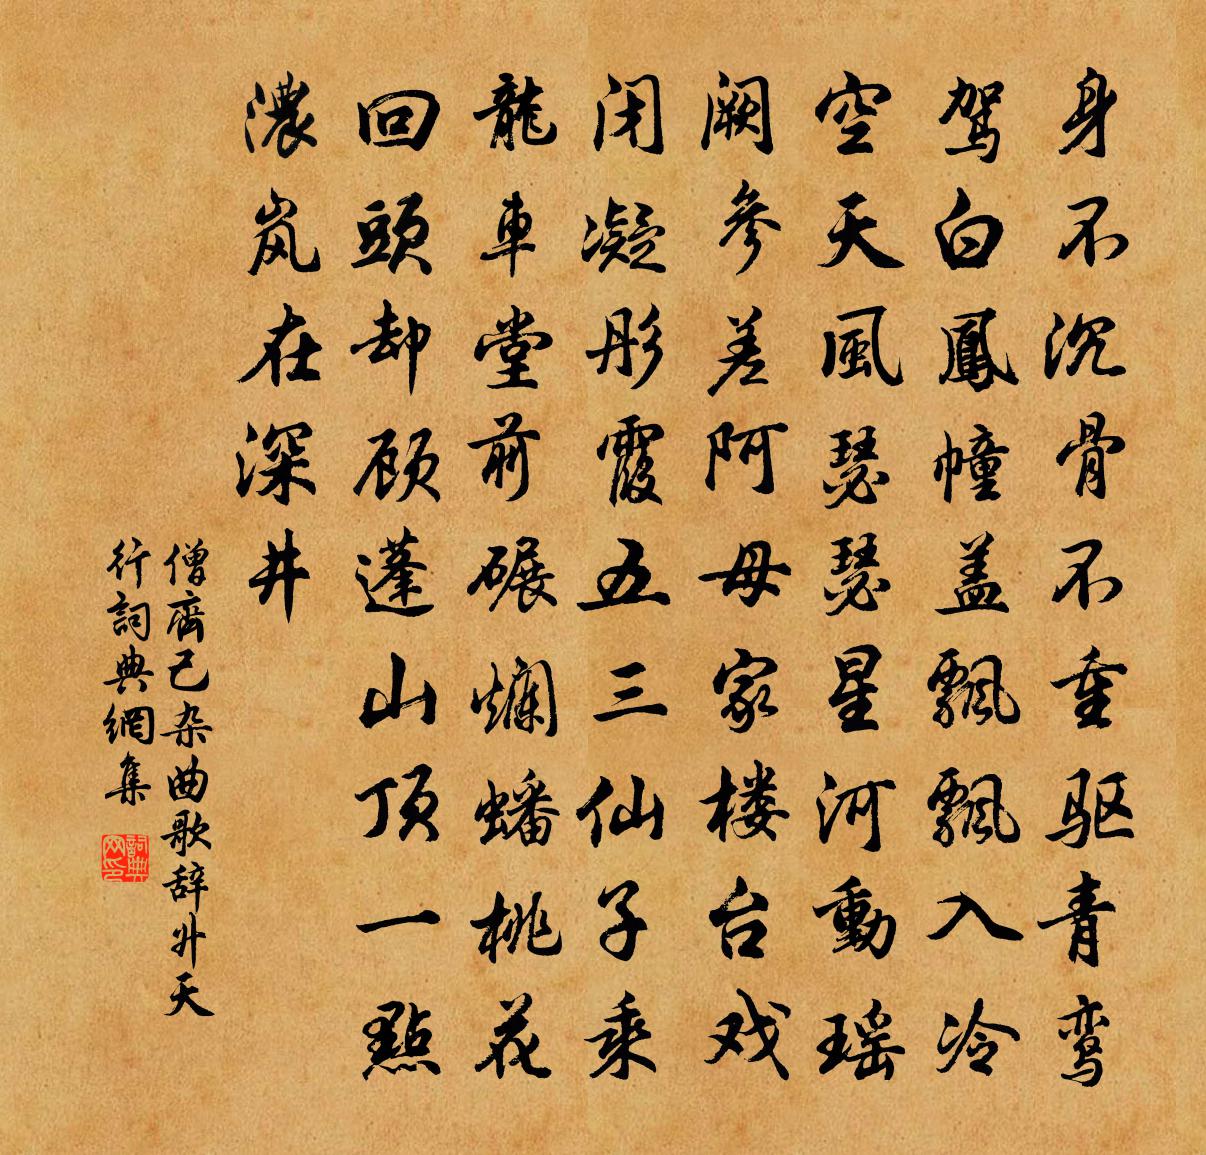 身不沉骨不重驱青鸾
驾白鳳幢盖飄飄入冷
空天風瑟瑟星河動瑶
阙參差阿母家楼台戏
闭凝彤霞五三仙子乘
龍車堂前碾爛蟠桃花
回頭却顾蓬山顶一點
濃岚在深井
僧齊己杂曲歌辞升天
行詞典網集
詞典网印